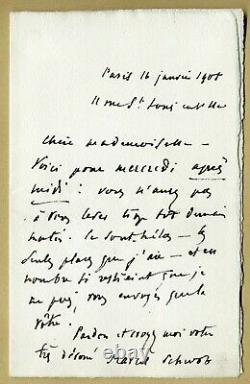 Paris 16 janvier 1905
11 rue St Louis en l'Ile
Chère Mademoiselle -
Voici pour mercredi après
midi : vous n'aurez pas
à vous lever trop tôt demain
matin. Ce sont, hélas - les
seules places que j'aie - et en
nombre si restreint que je
ne puis vous envoyer que la
vôtre.
Pardon et croyez moi votre
très dévoué Marcel Schwob